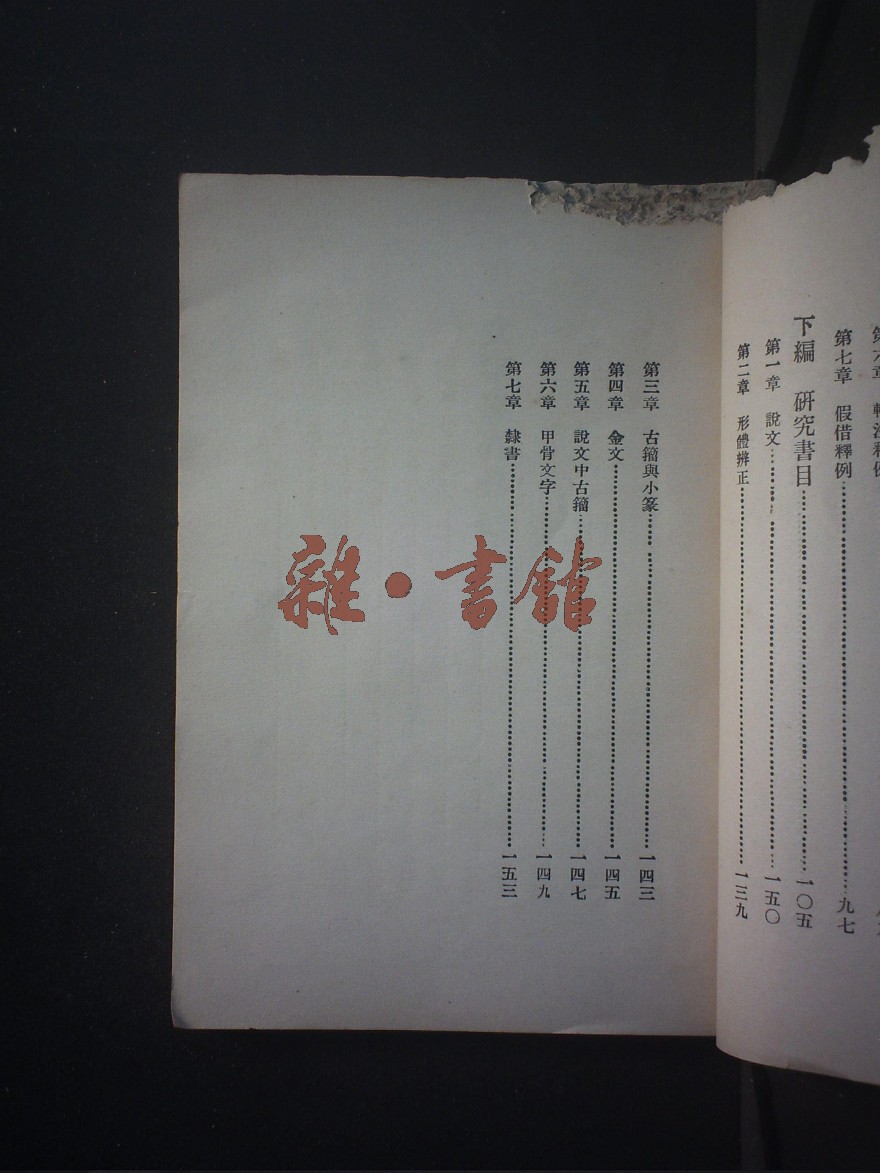 第七章 假借釋例 九七
下編 研究書目 一〇五
第一章 說文 一五〇
第二章 形體辨正 一三九
第三章 古籀與小篆 一四三
第四章 金文 一四五
第五章 說文中古籀 一四七
第六章 甲骨文字 一四九
第七章 隸書 一五三
雜·書館